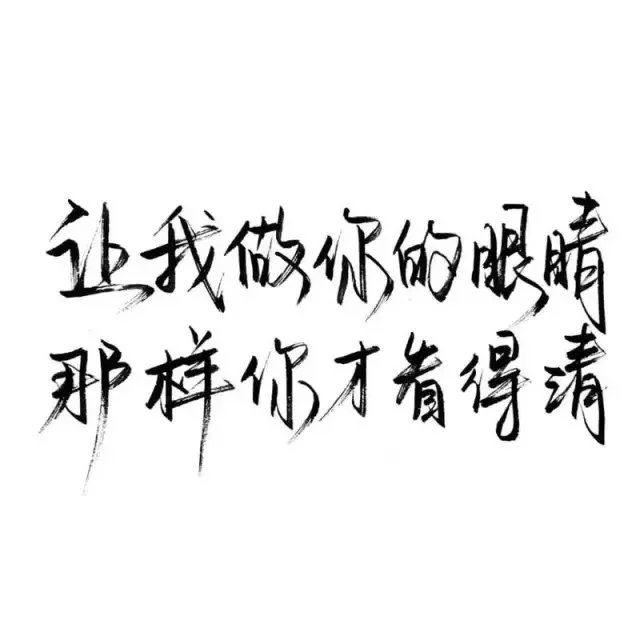 让我做你的眼睛
那样你才看得清